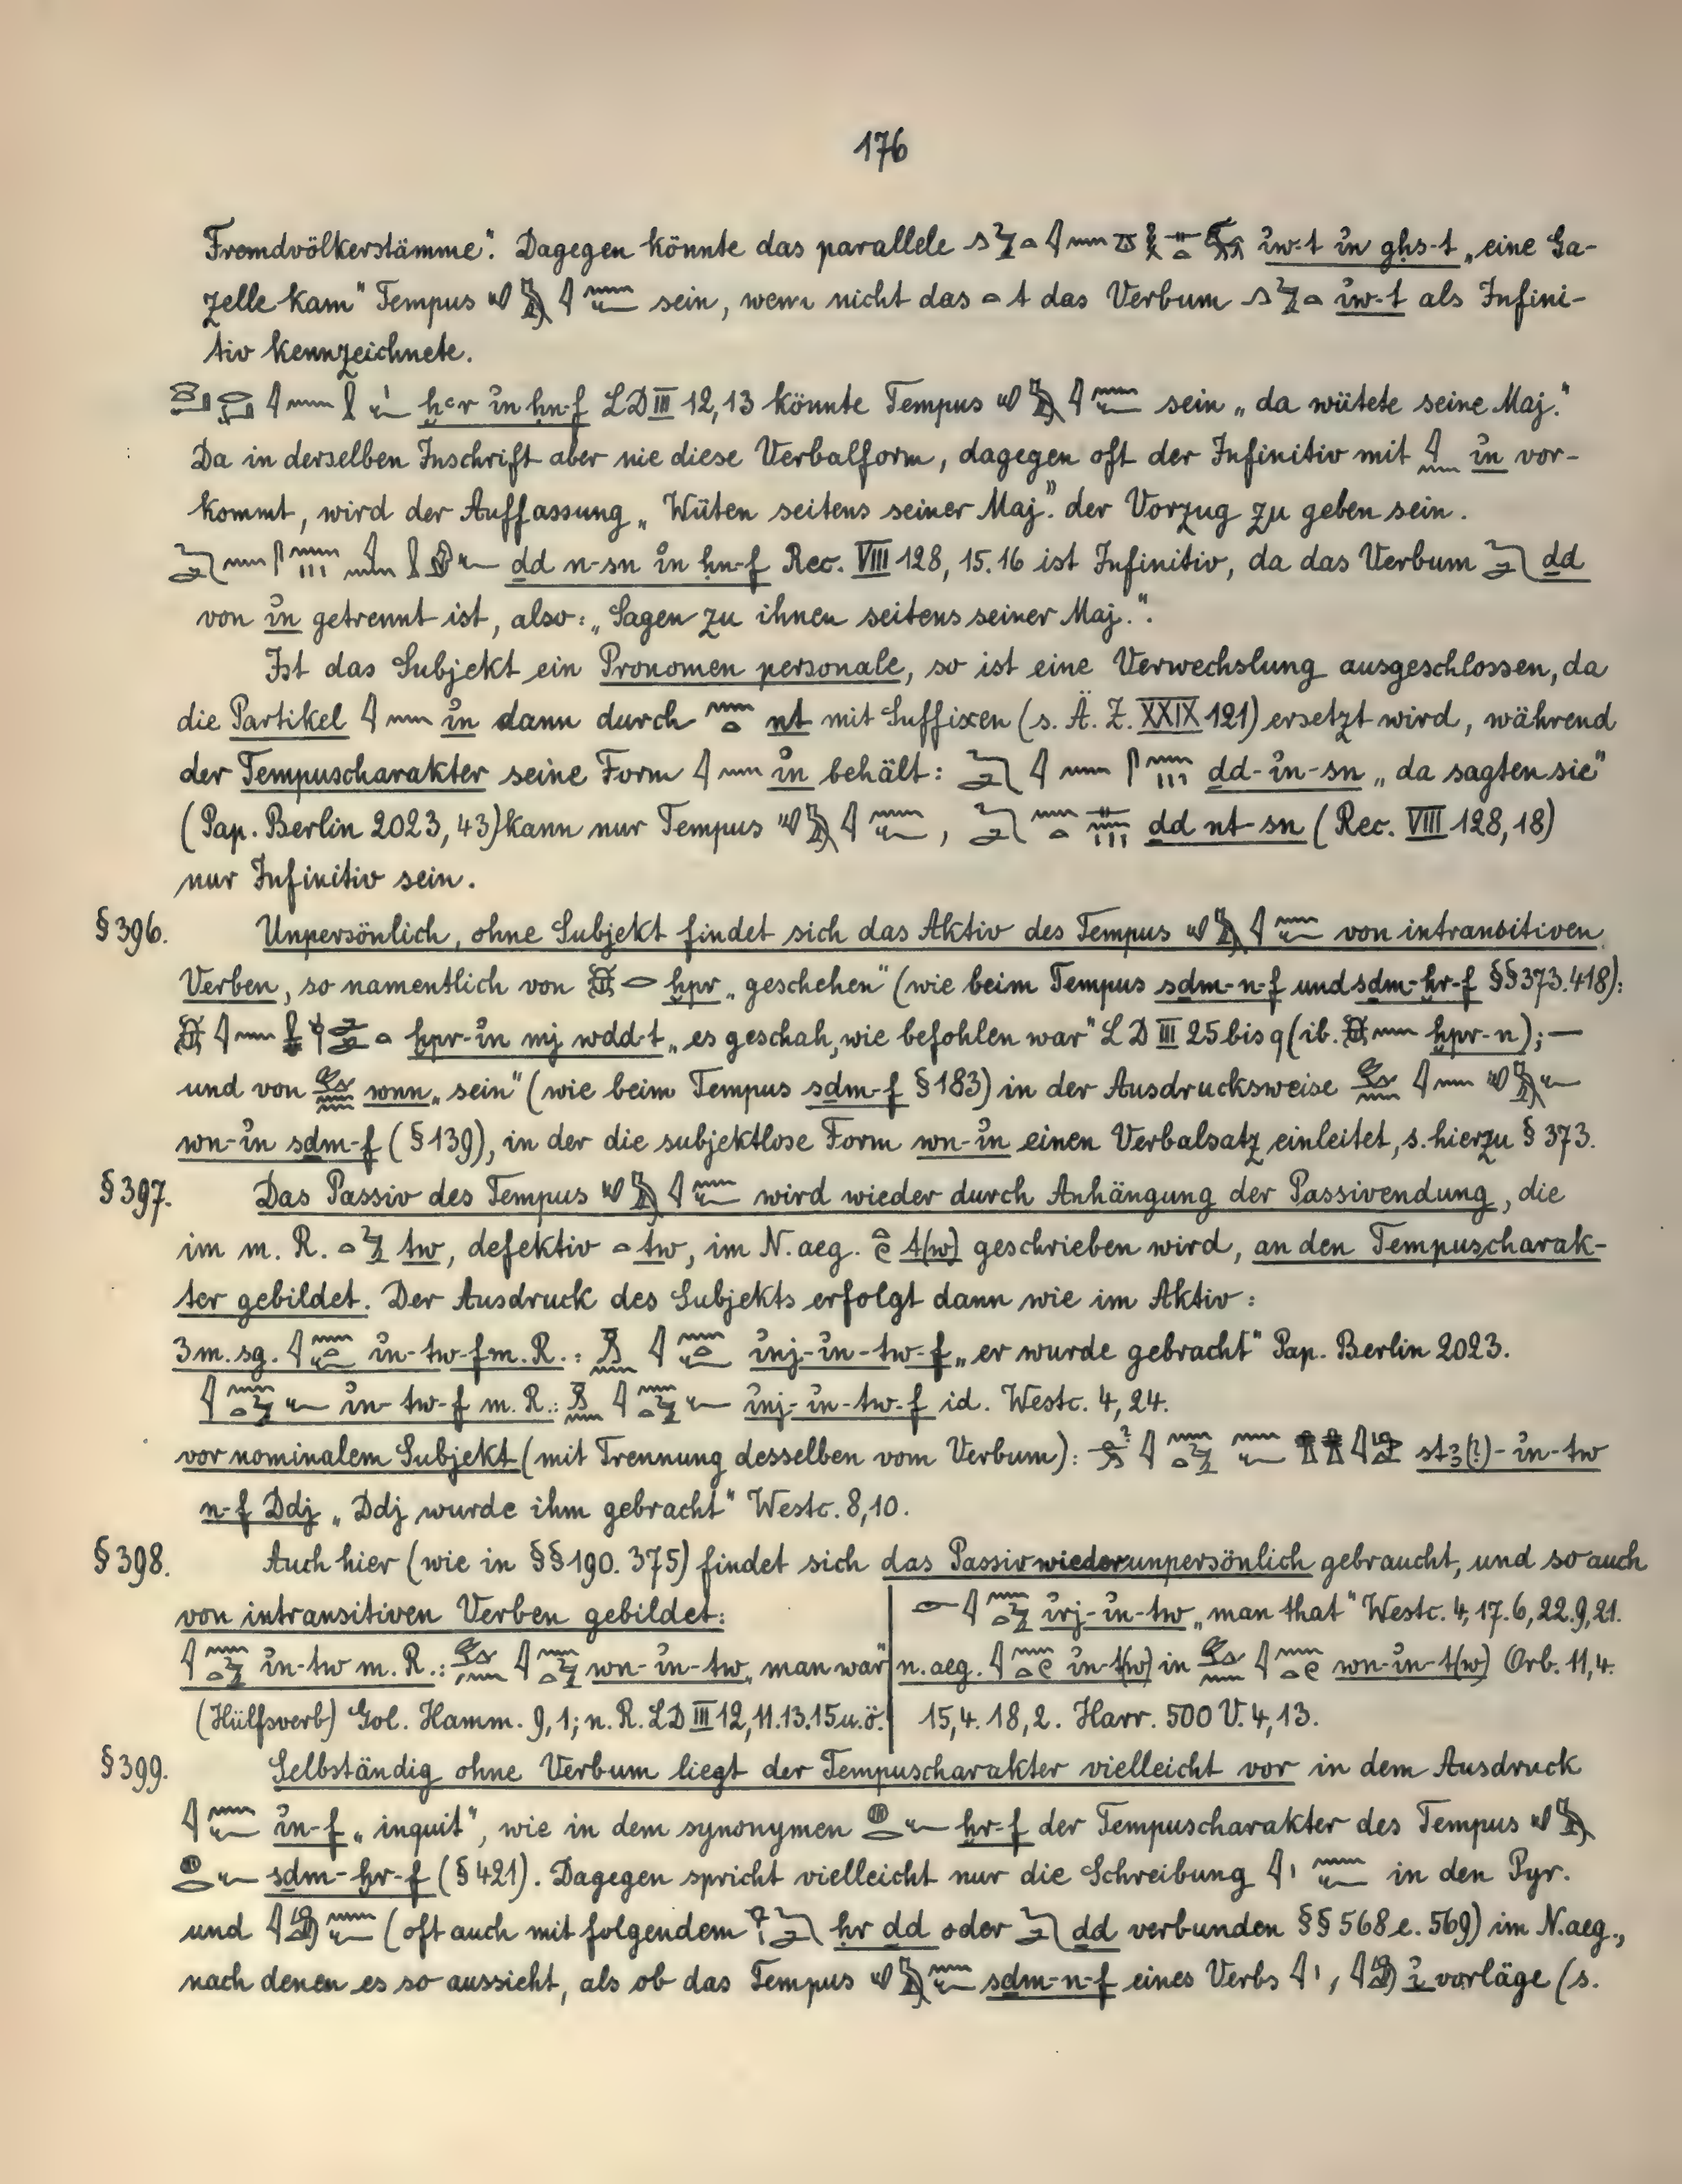 176
Fremdvölkerstämme“. Dagegen könnte das parallele i҆w-t i҆n gḥs-t „eine Ga-
zelle kam“ Tempus sein, wenn nicht das t das Verbum i҆w-t als Infini-
tiv kennzeichnete.
ḫꜥr i҆n ḥn-f LD III 12,13 könnte Tempus sein „da wütete seine Maj.“
Da in derselben Inschrift aber nie diese Verbalform, dagegen oft der Infinitiv mit i҆n vor-
kommt, wird der Auffassung „Wüten seitens seiner Maj.“ der Vorzug zu geben sein.
ḏd n-sn i҆n ḥn-f Rec. VIII 128, 15.16 ist Infinitiv, da das Verbum ḏd
von i҆n getrennt ist, also: „Sagen zu ihnen seitens seiner Maj.“.
Ist das Subjekt ein Pronomen personale, so ist eine Verwechslung ausgeschlossen, da
die Partikel i҆n dann durch nt mit Suffixen (s. Ä. Z. XXIX 121) ersetzt wird, während
der Tempuscharakter seine Form i҆n behält: ḏd-i҆n-sn „da sagten sie“
(Pap. Berlin 2023, 43) kann nur Tempus , ḏd nt-sn (Rec. VIII 128, 18)
nur Infinitiv sein.
§ 396. Unpersönlich, ohne Subjekt findet sich das Aktiv des Tempus von intransitiven
Verben, so namentlich von ḫpr „geschehen“ (wie beim Tempus sḏm-n-f und sḏm-ḫr-f §§ 373. 418):
ḫpr-i҆n mj wḏd-t „es geschah, wie befohlen war“ LD III 25 bis q (ib. ḫpr-n); —
und von wnn „sein“ (wie beim Tempus sḏm-f § 183) in der Ausdrucksweise
wn-i҆n sḏm-f (§ 139), in der die subjektlose Form wn-i҆n einen Verbalsatz einleitet, s. hierzu § 373.
§ 397. Das Passiv des Tempus wird wieder durch Anhängung der Passivendung, die
im m. R. tw, defektiv tw, im N. aeg. t(w) geschrieben wird, an den Tempuscharak-
ter gebildet. Der Ausdruck des Subjekts erfolgt dann wie im Aktiv:
3 m. sg. i҆n-tw-f m. R.: i҆nj-i҆n-tw-f „er wurde gebracht“ Pap. Berlin 2023.
i҆n-tw-f m. R.: i҆nj-i҆n-tw-f id. Westc. 4, 24.
vor nominalem Subjekt (mit Trennung desselben vom Verbum): stꜣ(?)-i҆n-tw
n-f Ddj „Ddj wurde ihm gebracht“ Westc. 8, 10.
§ 398. Auch hier (wie in §§ 190. 375) findet sich das Passiv wieder unpersönlich gebraucht, und so auch
von intransitiven Verben gebildet:
i҆n-tw m. R.: wn-i҆n-tw „man war“
(Hülfsverb) Gol. Hamm. 9, 1; n. R. LD III 12, 11.13.15 u. ö.
i҆rj-i҆n-tw „man that“ Westc. 4, 17. 6, 22. 9, 21.
n. aeg. i҆n-t(w) in wn-i҆n-t(w) Orb. 11, 4.
15, 4. 18, 2. Harr. 500 V. 4, 13.
§ 399. Selbständig ohne Verbum liegt der Tempuscharakter vielleicht vor in dem Ausdruck
i҆n-f „inquit“, wie in dem synonymen ḫr-f der Tempuscharakter des Tempus
sḏm-ḫr-f (§ 421). Dagegen spricht vielleicht nur die Schreibung in den Pyr.
und (oft auch mit folgendem ḥr ḏd oder ḏd verbunden §§ 568 e. 569) im N. aeg.,
nach denen es so aussieht, als ob das Tempus sḏm-n-f eines Verbs , i҆ vorläge (s.